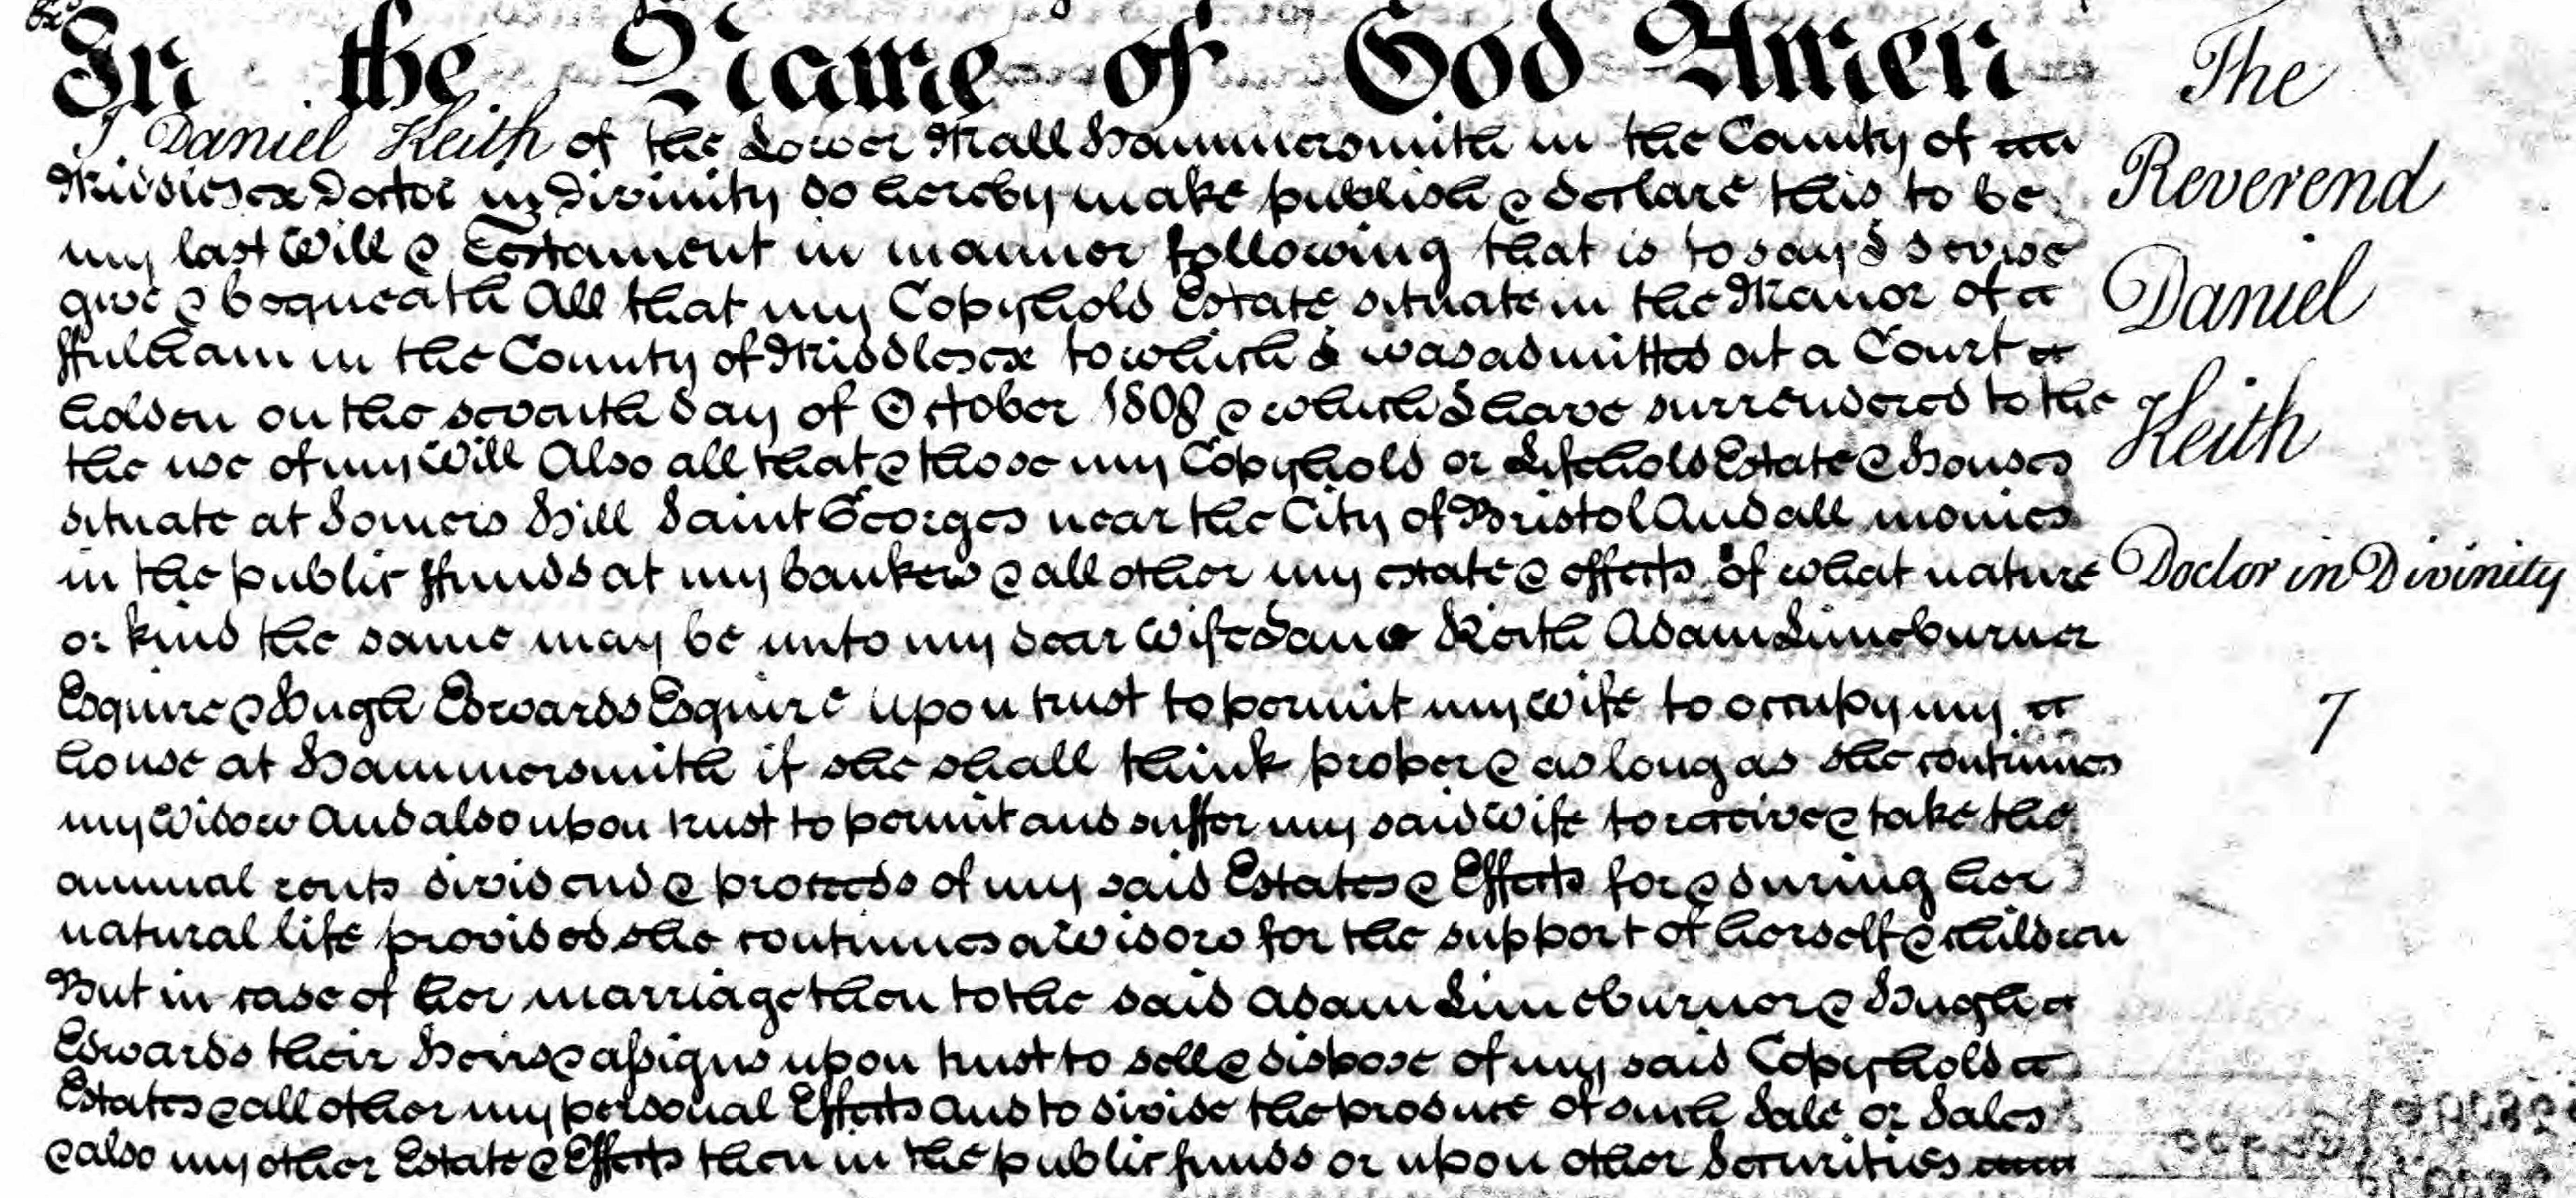 In the Name of God Amen
I Daniel Keith of the Lower Mall Hammersmith in the County of
Middlesex Doctor in Divinity do hereby make publish & declare this to be
my last Will & Testament in manner following that is to say I devise
give & bequeath All that my Copyhold Estate situate in the Manor of
ffulham in the County of Middlesex to which I was admitted at a Court
holden on the seventh day of October 1808 & which I have surrendered to the
the use of my Will Also all that & those my Copyhold or Lifehold Estate & Houses
situate at Somers Hill Saint Georges near the City of Bristol And all monies
in the public ffunds at my bankers & all other my estate & effects of what nature
or kind the same may be unto my dear Wife Jane Keith Adam Limeburner
Esquire & Hugh Edwards Esquire Upon trust to permit my wife to occupy my
house at Hammersmith if she shall think proper & as long as she continues
my Widow And also upon trust to permit and suffer my said Wife to receive & take the
annual rents dividends & proceeds of my said Estates & Effects for & during her
natural life provided she continues a Widow for the support of herself & children
But in case of her marriage then to the said Adam Limeburner & Hugh
Edwards their Heirs & assigns upon trust to sell & dispose of my said Copyhold
Estates & all other my personal Effects And to divide the produce of such Sale or Sales
& also my other Estate & Effects then in the public funds or upon other Securities
The
Reverend
Daniel
Keith
Doctor in Divinity
7